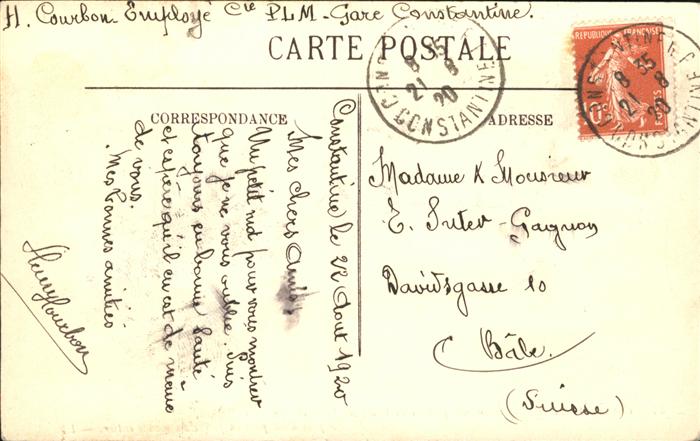 H. Courbon Employé Cie PLM-Gare Constantine.
CARTE POSTALE
CORRESPONDANCE
ADRESSE
RÉPUBLIQUE FRANÇAISE
POSTES
CONSTANTINE
8 35
21 8
20
CONSTANTINE
8 35
21 8
20
Constantine le 22 Aout 1920
Mes chers Amis.
Un petit mot pour vous montrer
que je ne vous oublie. Suis
toujours en bonne santé
et espère qu'il en est de même
de vous.
Mes bonnes amitiés
Henry Courbon
Madame & Monsieur
E. Suter-Gagnon
Davidsgasse 10
Bâle.
(Suisse)